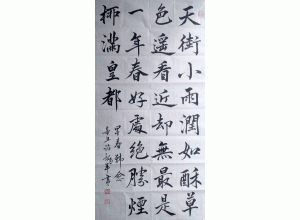 天街小雨潤如酥草
色遥看近却無最是
一年春好處絶勝煙
柳滿皇都
早春韓愈